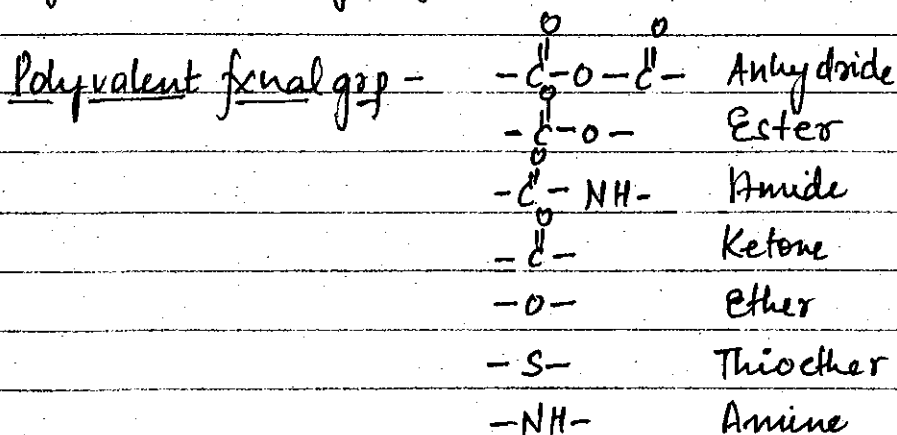 Polyvalent fxnal grp - -C(=O)-O-C(=O)- Anhydride
-C(=O)-O- Ester
-C(=O)-NH- Amide
-C(=O)- Ketone
-O- Ether
-S- Thioether
-NH- Amine